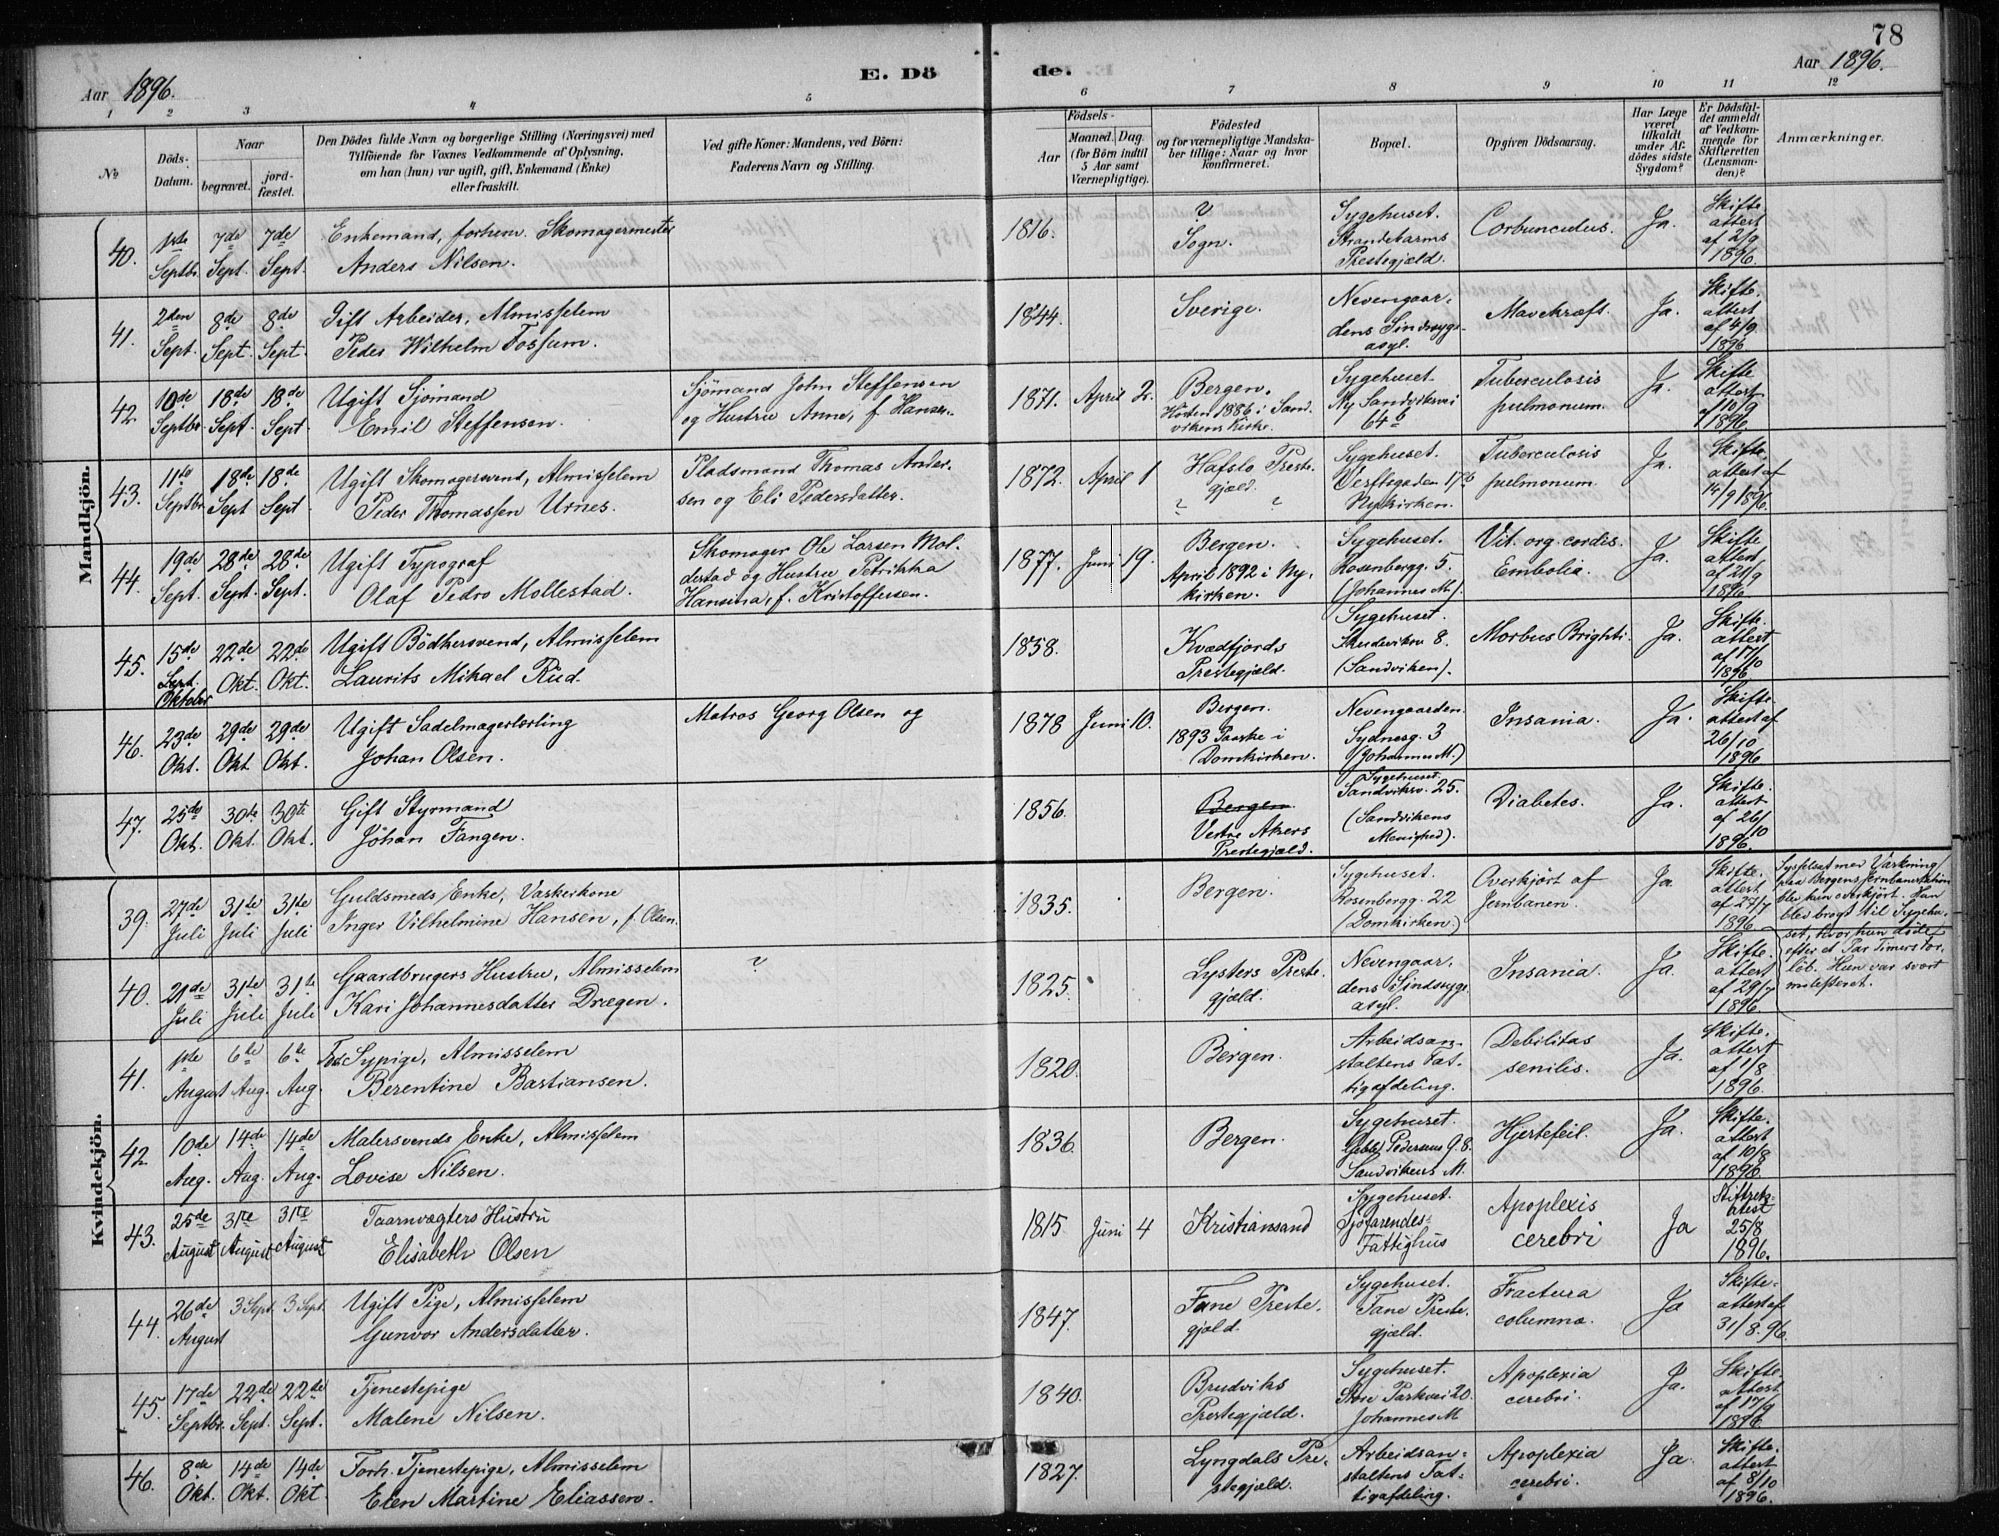 78
Aar 1896.
E. Dö
de.
Aar 1896.
1 2 3 4 5 6 7 8 9 10 11 12
№
Döds-
Datum.
Naar
begravet.
jord-
fæstet.
Den Dödes fulde Navn og borgerlige Stilling (Næringsvei) med
Tilföiende for Voxnes Vedkommende af Oplysning,
om han (hun) var ugift, gift, Enkemand (Enke)
eller fraskilt.
Ved gifte Koner: Mandens, ved Börn:
Faderens Navn og Stilling.
Födsels-
Aar
Maaned. Dag.
(for Börn indtil
5 Aar samt
Værnepligtige).
Födested
og for værnepligtige Mandska-
ber tillige: Naar og hvor
konfirmeret.
Bopæl.
Opgiven Dödsaarsag.
Har Læge
været
tilkaldt
under Af-
dödes sidste
Sygdom?
Er Dödsfal-
det anmeldt
af Vedkom-
mende for
Skifteretten
(Lensman-
den)?
Anmærkninger.
Mandkjön.
40.
1ste Septbr.
7de Sept.
7de Sept.
Enkemand, forhenv. Skomagermester
Anders Nilsen.
1816.
?
Sogn.
Sygehuset.
Strandebarms
Prestegjæld.
Corbunculus.
Ja.
Skifte.
attert
af 2/9
1896.
41.
2den Sept.
8de Sept.
8de Sept.
Gift Arbeider, Almisselem
Peder Wilhelm Fossum.
1844.
Sverige.
Nevengaar.
dens Sindssygs-
asyl.
Mavekræft.
Ja.
Skifte.
attert
af 4/9
1896
42.
10de Septbr.
18de Sept.
18de Sept.
Ugift Sjömand
Emil Steffensen.
Sjömand John Steffensen
og Hustru Anne, f. Hanser.
1871. April 2.
Bergen.
Hösten 1886 i Sand.
vikens Kirke.
Sygehuset.
Ny Sandviksvei
64 b
Tuberculosis
pulmonum.
Ja.
Skifte
attert
af 10/9
1896.
43.
11te Septbr.
18de Sept
18de Sept
Ugift Skomagersvend, Almisselem
Peder Thomassen Urnes.
Pladsmand Thomas Ander.
sen og Eli Pedersdatter.
1872. April 1
Hafslo Preste.
gjæld.
? ?
Sygehuset.
Verftsgaden 17b
Nykirken.
Tuberculosis
pulmonum.
Ja.
Skifte.
attert af
14/9 1896.
44.
19de Sept.
28de Sept.
28de Sept.
Ugift Typograf
Olaf Pedro Mollestad.
Skomager Ole Larsen Mol-
destad og Hustru Petrikka
Hansina, f. Kristoffersen.
1877. Juni 19.
Bergen.
April 1892 i Ny-
kirken.
Sygehuset.
Rosenbergg. 5.
(Johannes M).
Vit. org. cordis.
Embolia.
Ja.
Skifte
attert
af 21/9
1896.
45.
15de Sept. Oktober
22de Okt.
22de Okt.
Ugift Bödkersvend, Almisselem
Laurits Mikael Rud.
1858.
Kvædfjords
Prestegjæld.
Sygehuset.
Skudeviksv 8.
(Sandviken).
Morbus Brighti.
Ja.
Skifte.
attert
af 17/10
1896.
46.
23de Okt.
29de Okt
29de Okt.
Ugift Sadelmagerlærling
Johan Olsen.
Matros Georg Olsen og
1878 Juni 10.
Bergen.
1893 Paaske i
Domkirken.
Nevengaarden.
Sydnesg. 3
(Johannes M.)
Insania.
Ja.
Skifte.
attert af
26/10
1896
47.
25de Okt.
30te Okt.
30te Okt.
Gift Styrmand
Johan Fangen.
1856.
Bergen
Vestre Akers
Prestegjæld.
Sygehuset.
Sandviksv. 25.
(Sandvikens
Menighed).
Diabetes.
Ja.
Skifte.
attert
af 26/10
1896.
Kvindekjön.
39.
27de Juli
31te Juli
31te Juli
Guldsmeds Enke, Vaskerkone
Inger Vilhelmine Hansen, f. Olsen.
1835.
Bergen.
Sygehuset.
Rosenbergg. 22
(Domkirken.)
Overkjört af
Jernbanen.
Ja.
Skifte.
attert
af 27/7
1896
Sysselsat med Vaskning
paa Bergens Jernbanestation
blev hun overkjört. Hun
blev bragt til Sygehu.
set, hvor hun döde
efter et Par Timers For.
löb. Hun var svært
molesteret.
40.
21de Juli
31te Juli
31te Juli
Gaardbrugers Hustru, Almisselem
Kari Johannesdatter Drægen.
?
1825.
Lysters Preste.
gjæld.
Nevengaar.
dens Sindssygs.
asyl.
Insania.
Ja.
Skifte.
attert
af 29/7
1896.
41.
1ste August
6te Aug.
6te Aug.
Sypige, Almisselem
Berentine Bastiansen.
1820.
Bergen.
Arbeidsan-
staltens Fat-
tigafdeling.
Debilitas
senilis.
Ja.
Skifte.
attert
af 1/8
1896.
42
10de Aug.
14de Aug.
14de Aug.
Malersvends Enke, Almisselem
Lovise Nilsen.
1836.
Bergen.
Sygehuset.
Pedersens G 8.
Sandvikens M.
Hjertefeil.
Ja.
Skifte.
attert
af 10/8
1896
43.
25de August
31te August
31te August
Taarnvægters Hustru
Elisabeth Olsen
1815 Juni 4
Kristiansand
Sygehuset.
Sjöfarendes-
Fattighus
Apoplexis
cerebri
Ja
Skiftretz.
atest
25/8
1896.
44.
26de August
3 Sept.
3 Sept.
Ugift Pige, Almisselem
Gunvor Andersdatter.
1847.
Fane Preste.
gjæld.
Sygehuset.
Fane Preste.
gjæld.
Fractura
columna.
Ja
Skifte-
attert af
31/8. 96.
45.
17de Septbr.
22de Sept.
22de Sept.
Tjenestepige
Malene Nilsen.
1840.
Brudviks
Prestegjæld.
Sygehuset.
Store Parkvei 20.
Johannes M
Apoplexia
cerebri.
Ja.
Skifte.
attert
af 17/9
1896
46.
8de Okt.
14de Okt.
14de Okt.
Forh. Tjenestepige, Almisselem
Elen Martine Eliassen.
1827.
Lyngdals Pre-
stegjæld.
Arbeidsan-
staltens Fat-
tigafdeling.
Apoplexia
cerebri.
Ja.
Skifte.
attert
af 8/10
1896.